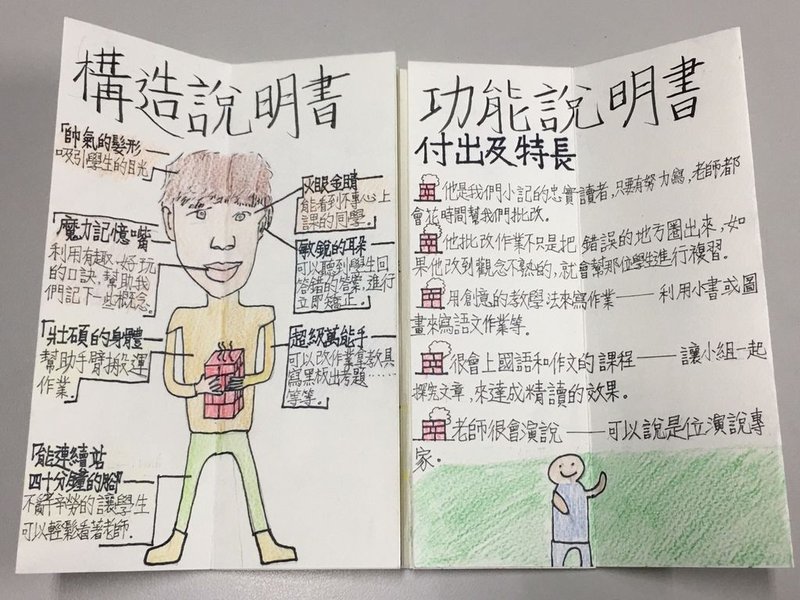 構造說明書
「帥氣的髮形
吸引學生的目光
火眼金睛
能看到不專心上
課的同學。
魔力記憶嘴
利用有趣、好玩
的口訣,幫助我
們記下一些概念。
敏銳的耳朵
可以聽到學生回
答錯的答案,進行
立即矯正。
壯碩的身體
幫助手臂搬運
作業。
超級萬能手
可以改作業拿教具
寫黑板出考題……
等等。
能連續站
四十分鐘的腳
不辭辛勞的讓學生
可以輕鬆看著老師.
功能說明書
付出及特長
他是我們小記的忠實讀者,只要有努力寫,老師都
會花時間幫我們批改。
他批改作業不只是把錯誤的地方圈出來,如
果他改到觀念不熟的,就會幫那位學生進行複習。
用創意的教學法來寫作業——利用小書或圖
畫來寫語文作業等。
很會上國語和作文的課程——讓小組一起
探究文章,來達成精讀的效果。
老師很會演說——可以說是位演說專
家。